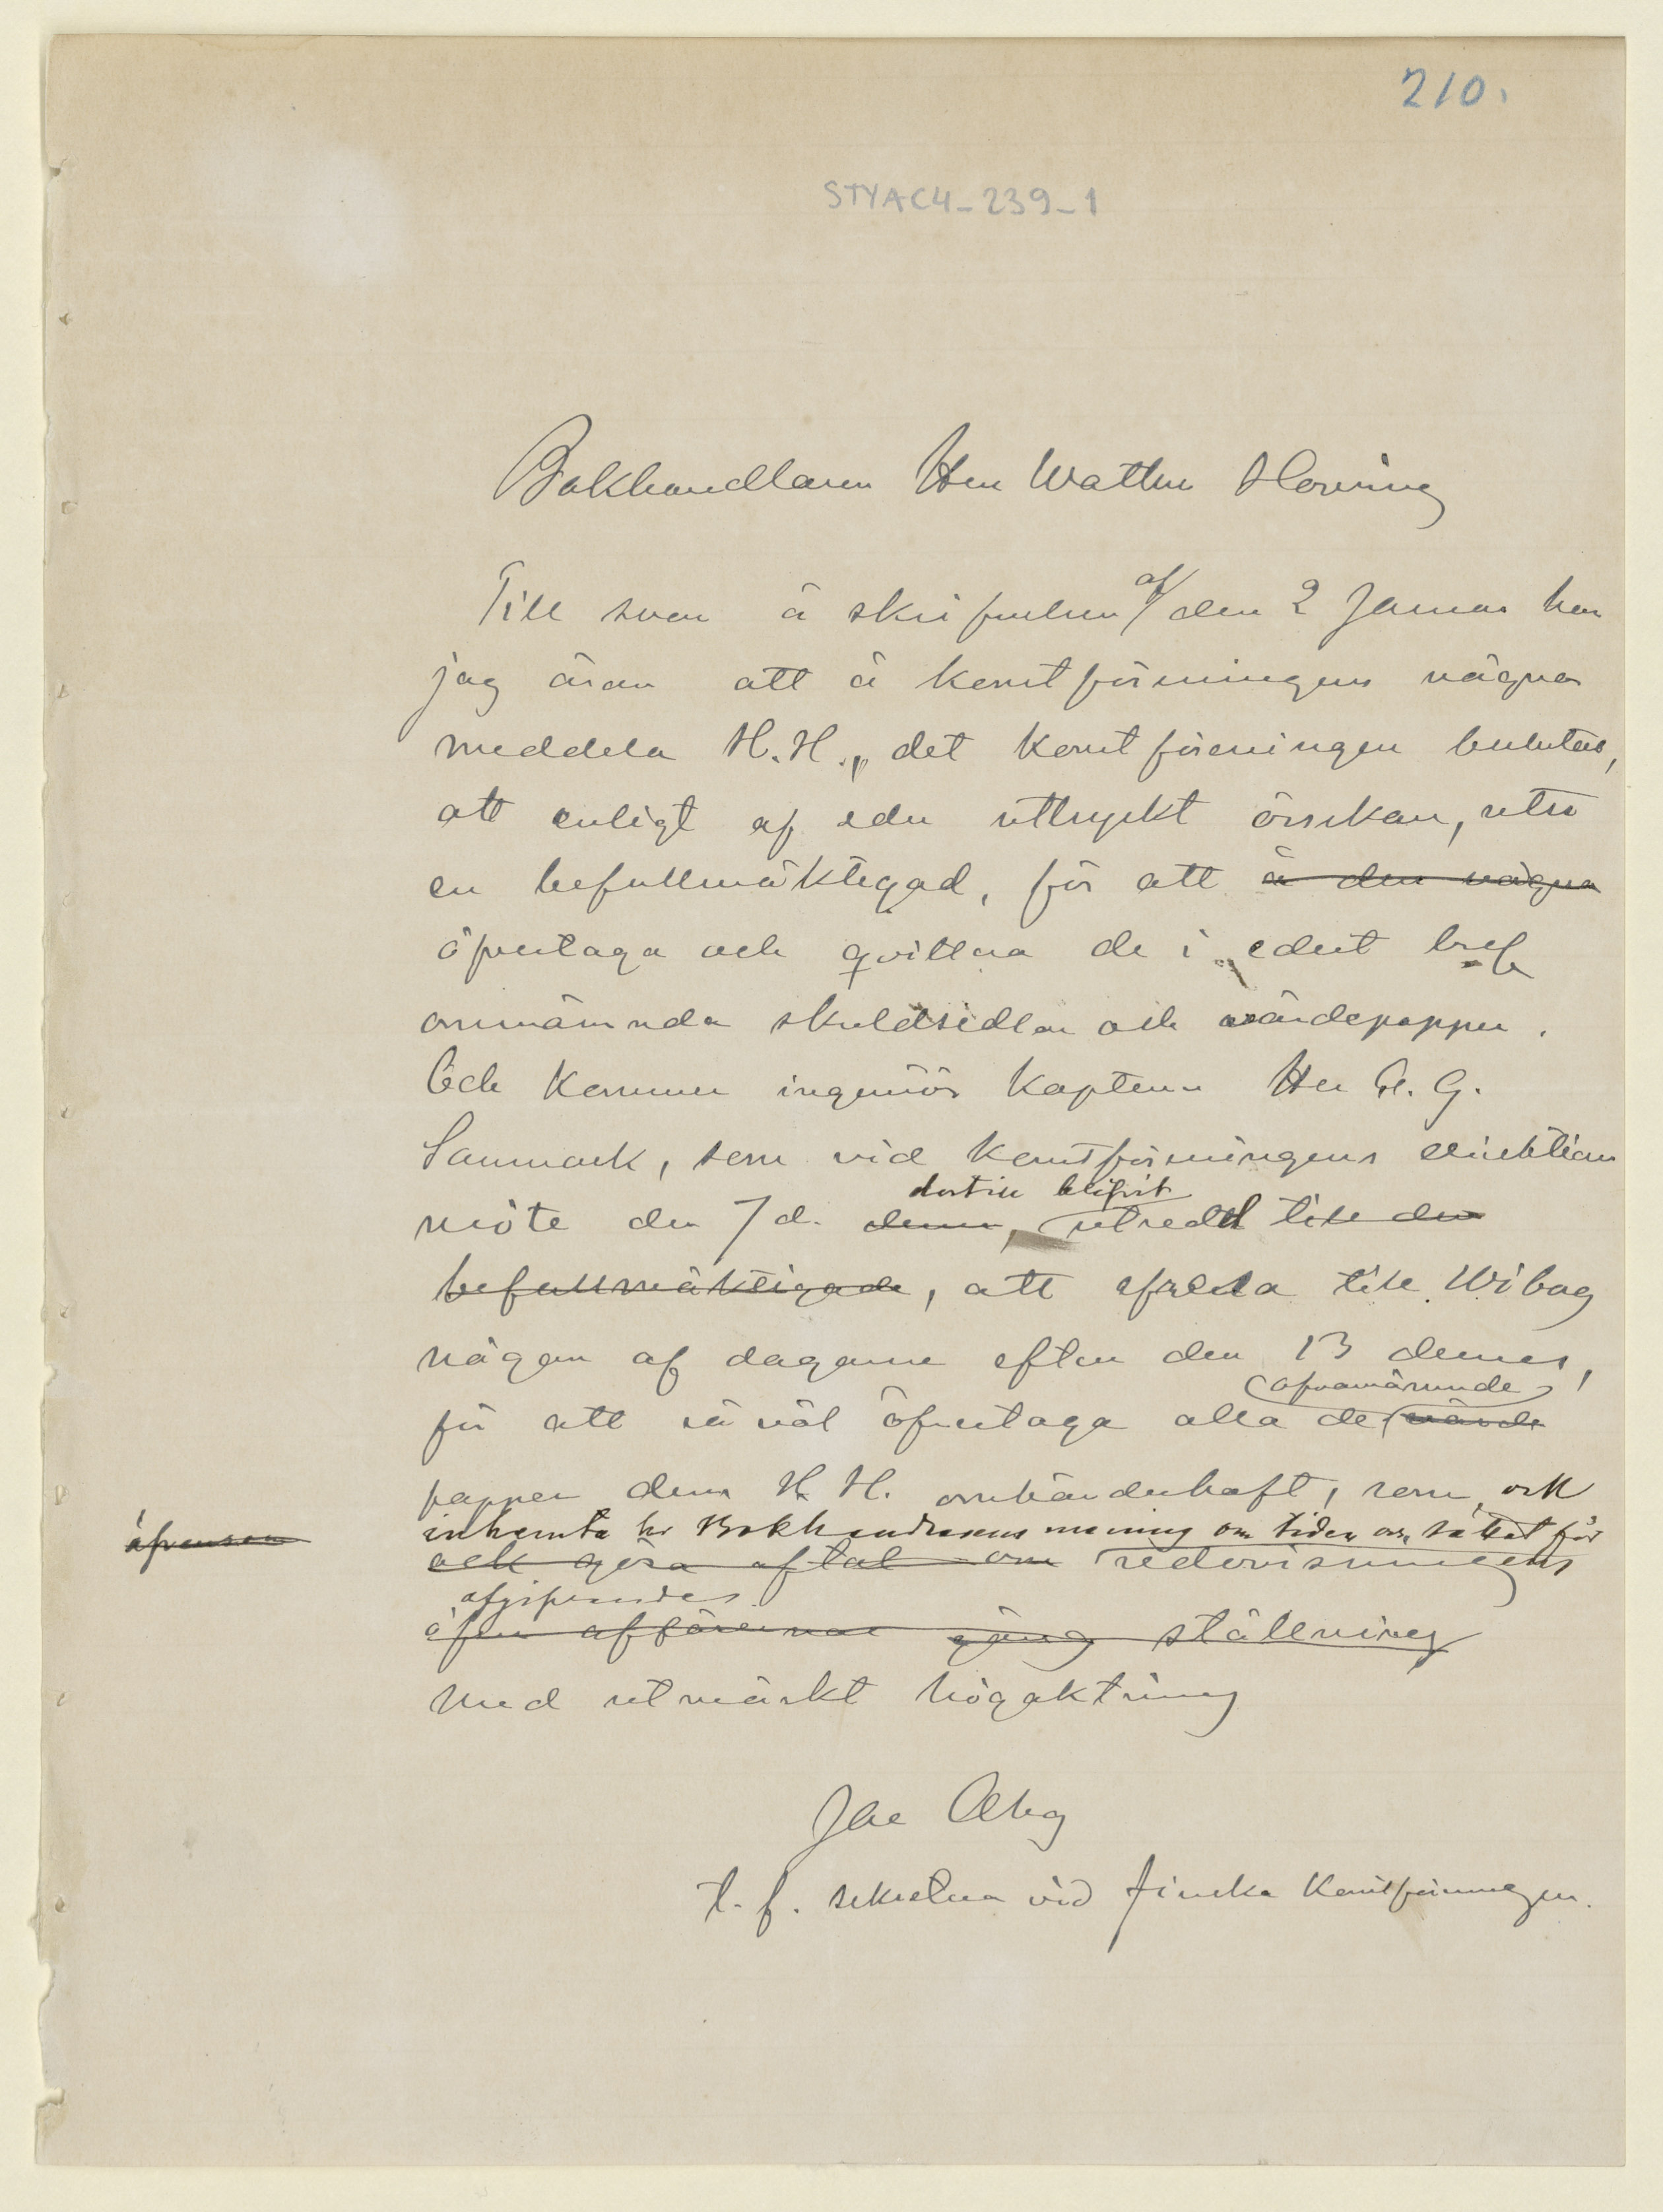 210.
STYAC4_239_1
Bokhandlaren Herr Walther Hoving
Till svar å skrifvelsen af den 2 Januar har
jag äran att å konstföreningens vägnar
meddela H.H., det konstföreningen beslutas,
att enligt af eder uttryckt önskan, utse
en befullmäktigad, för att å den vägnar
öfvertaga och qvittera de i edert bref
omnämnda skuldsedlar och värdepapper.
Och kommer ingeniör kapten Herr G.
Sanmark, som vid konstföreningens direktions
möte den 7 d. dennes, utsedd till den
dertill blifvit
befullmäktigade, att afresa till Wiborg
någon af dagarne efter den 13 dennes,
för att så väl öfvertaga alla de värde
ofvannämnde
papper dem H. H. omhänderhaft, som ock
inhemta hr Bokhandlarens mening om tiden och sättet för
åfvensom
och göra aftal om redovisningens
afgifvandes.
öfver affärernas gång ställning
Med utmärkt högaktning
Jac Ahrg
t. f. sekreterare vid Finska Konstföreningen.